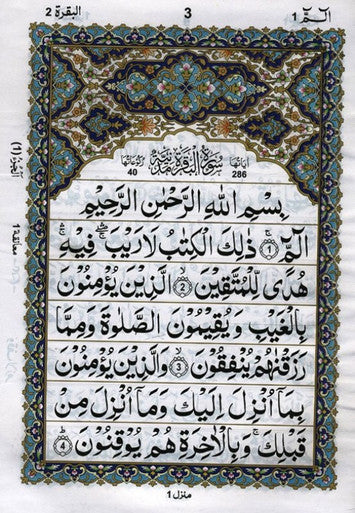 الٓمّٓ ١
3
البقرة 2
اٰیاتها 286
سُوْرَةُ الْبَقَرَةِ مَدَنِیَّةٌ
رکوعاتها 40
بِسْمِ اللّٰهِ الرَّحْمٰنِ الرَّحِیْمِ
الٓمّٓ ۚ﴿1﴾ ذٰلِكَ الْكِتٰبُ لَا رَیْبَ ۛۖۚ فِیْهِ ۛۚ
هُدًی لِّلْمُتَّقِیْنَ ۙ﴿2﴾ الَّذِیْنَ یُؤْمِنُوْنَ
بِالْغَیْبِ وَ یُقِیْمُوْنَ الصَّلٰوةَ وَ مِمَّا
رَزَقْنٰهُمْ یُنْفِقُوْنَ ۙ﴿3﴾ وَالَّذِیْنَ یُؤْمِنُوْنَ
بِمَاۤ اُنْزِلَ اِلَیْكَ وَ مَاۤ اُنْزِلَ مِنْ
قَبْلِكَ ۚ وَ بِالْاٰخِرَةِ هُمْ یُوْقِنُوْنَ ؕ﴿4﴾
الجزء (1)
معانقة 1
منزل 1